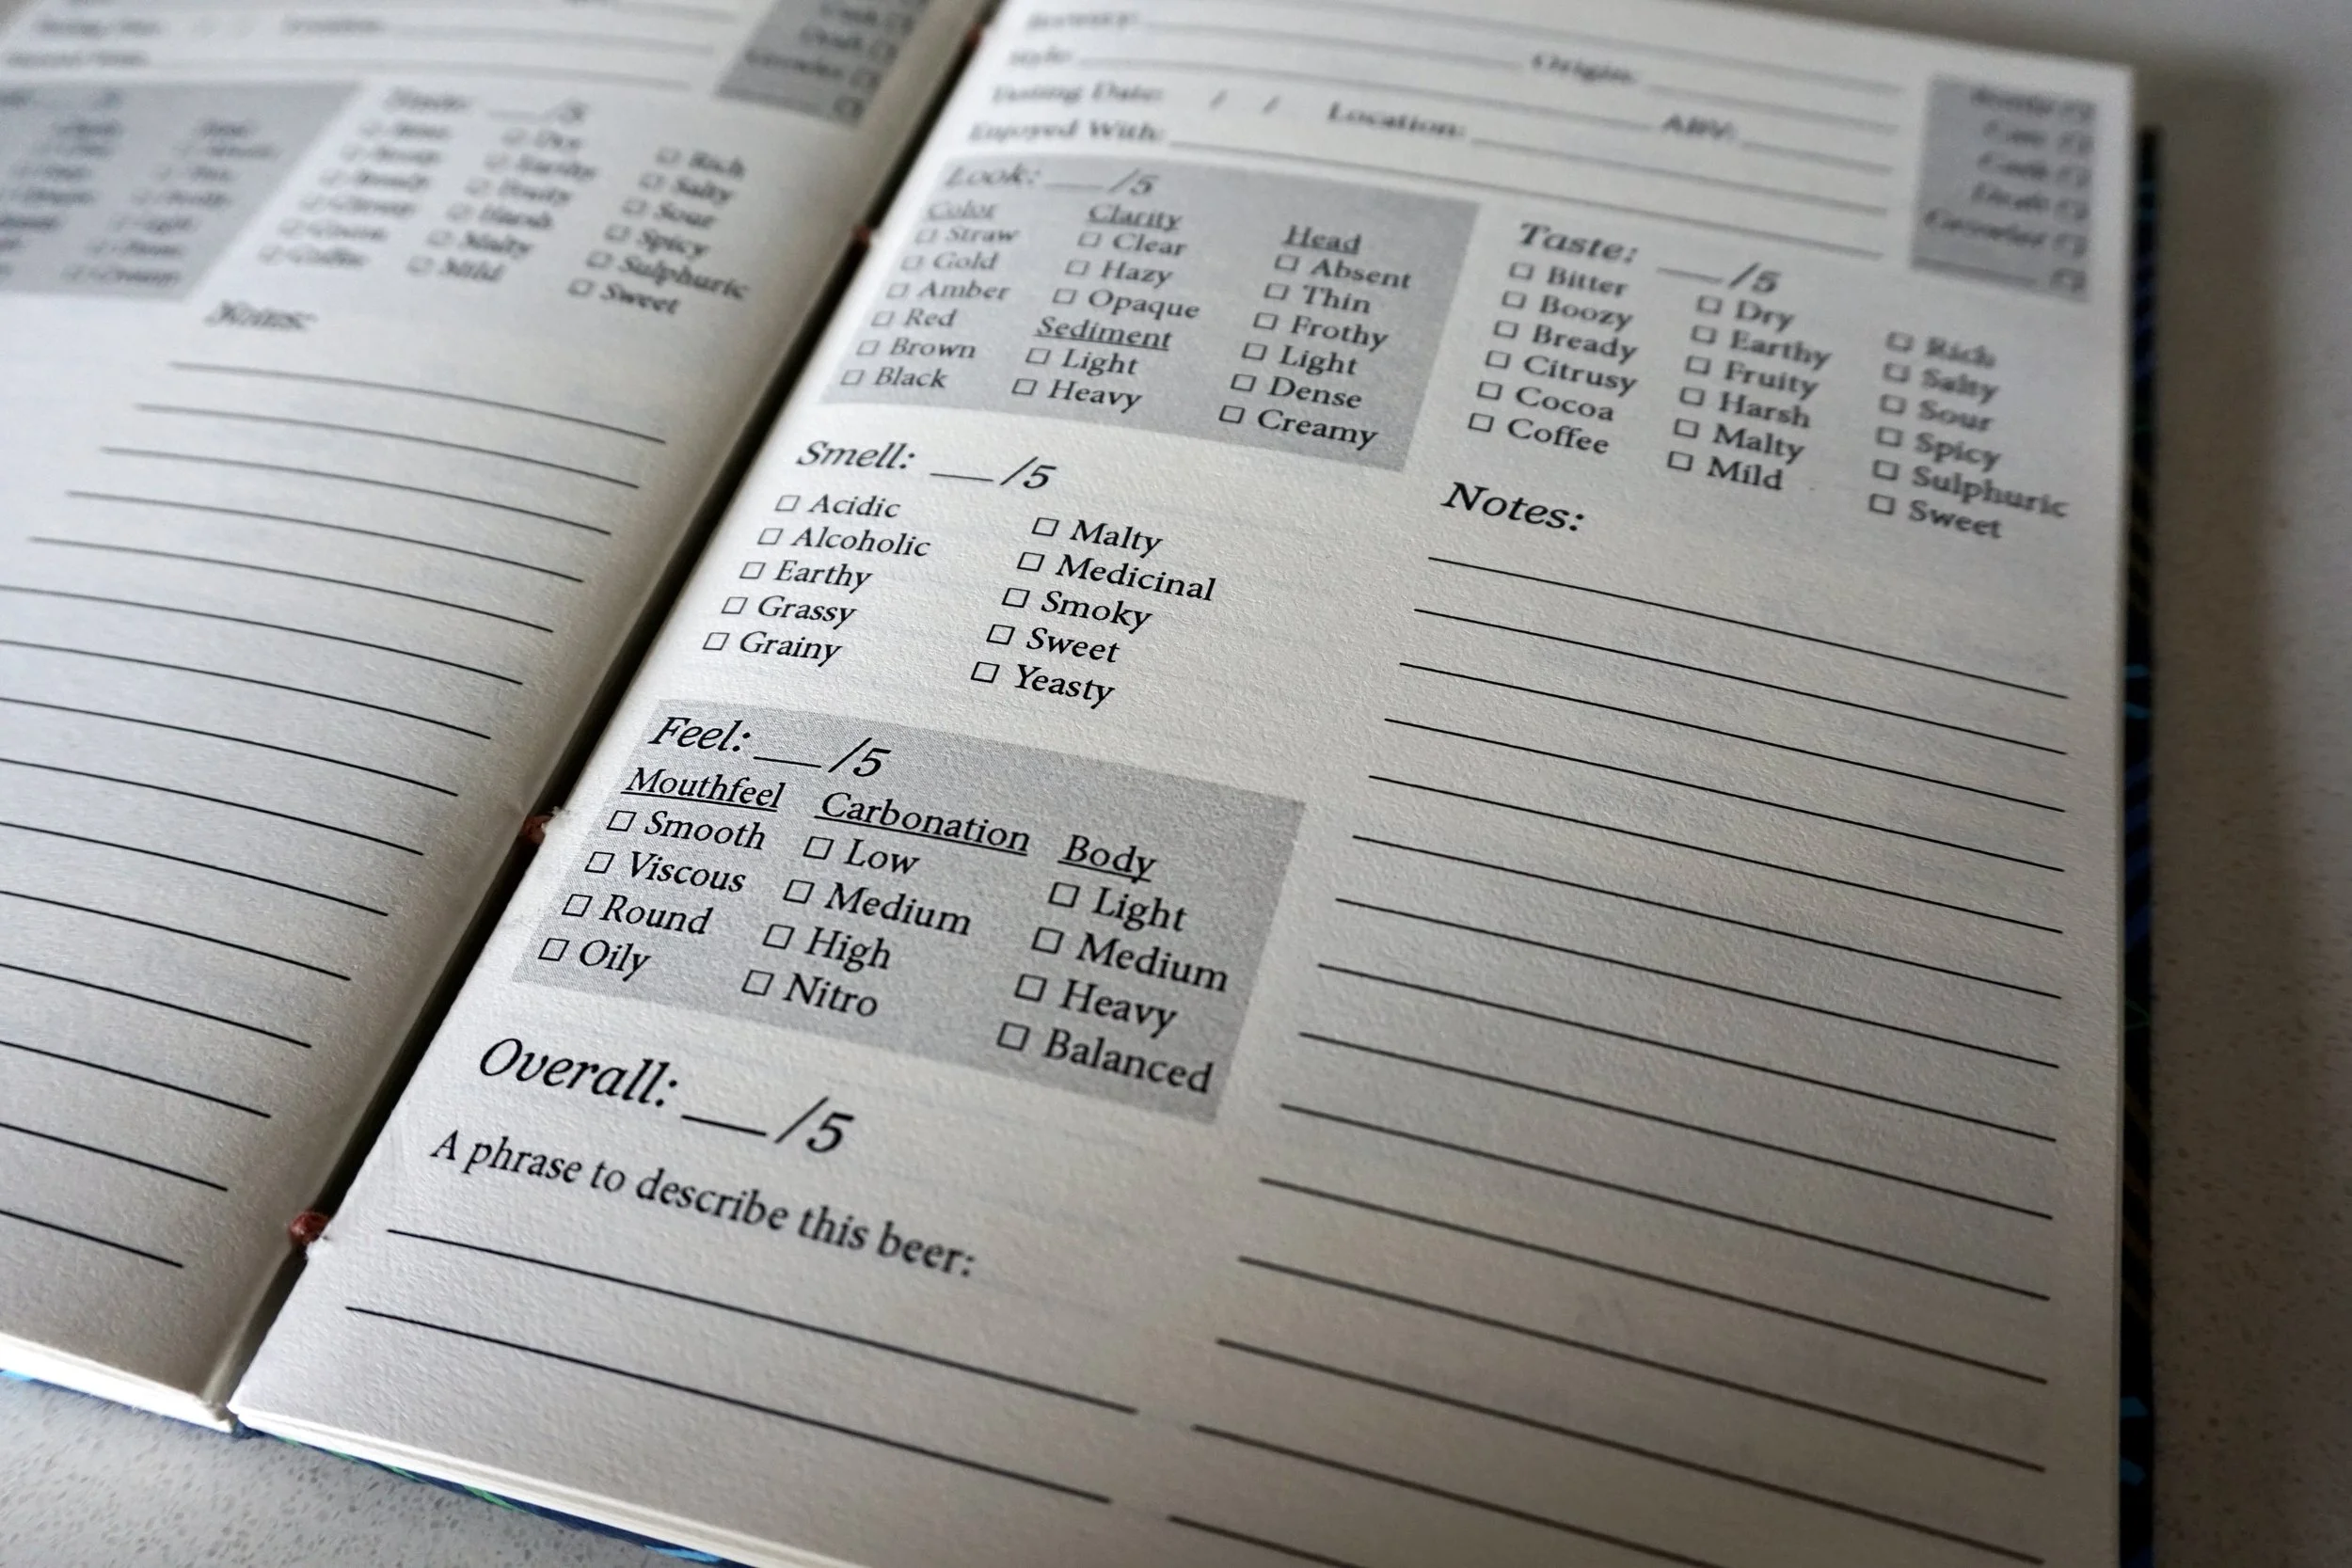 Brewery:
Style: Origin:
Tasting Date: / / Location: ABV:
Enjoyed With:
Look: /5
Color
Straw
Gold
Amber
Red
Brown
Black
Clarity
Clear
Hazy
Opaque
Sediment
Light
Heavy
Head
Absent
Thin
Frothy
Light
Dense
Creamy
Smell: /5
Acidic
Alcoholic
Earthy
Grassy
Grainy
Malty
Medicinal
Smoky
Sweet
Yeasty
Feel: /5
Mouthfeel
Smooth
Viscous
Round
Oily
Carbonation
Low
Medium
High
Nitro
Body
Light
Medium
Heavy
Balanced
Overall: /5
A phrase to describe this beer:
Taste: /5
Bitter
Boozy
Bready
Citrusy
Cocoa
Coffee
Dry
Earthy
Fruity
Harsh
Malty
Mild
Rich
Salty
Sour
Spicy
Sulphuric
Sweet
Notes:
Taste: /5
Dry
Earthy
Fruity
Harsh
Malty
Mild
Rich
Salty
Sour
Spicy
Sulphuric
Sweet
Notes: